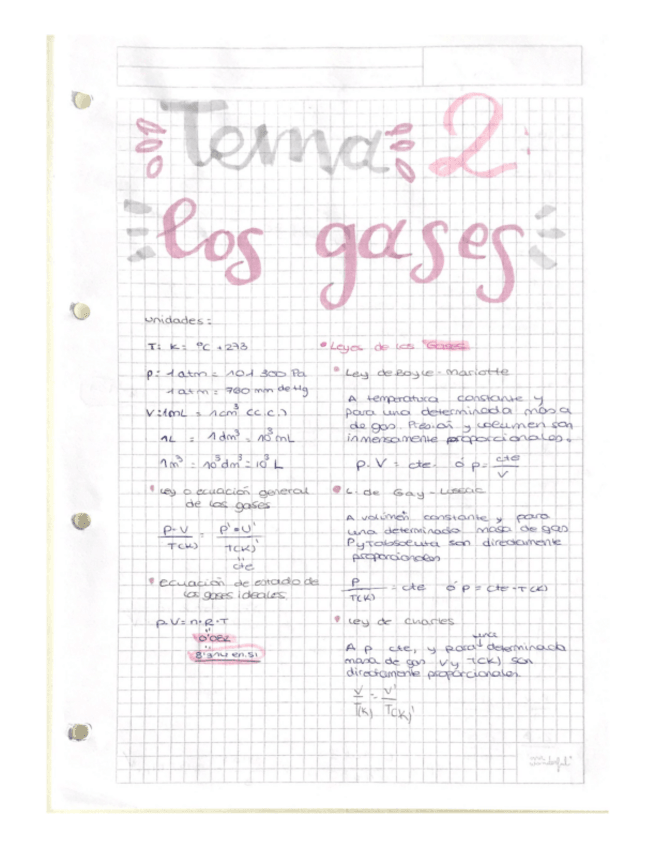 Tema 2:
los gases
unidades:
T: K = ºC + 273
p: 1 atm = 101 300 Pa
1 atm = 760 mm de Hg
V: 1mL = 1cm³ (c.c.)
1L = 1dm³ = 10³ mL
1m³ = 10³ dm³ = 10³ L
Ley o ecuación general
de los gases
P·V / T(K) = P'·V' / T(K)'
cte
ecuación de estado de
los gases ideales
p·V = n·R·T
0'082
8'314 en SI
Leyes de los Gases
Ley de Boyle-Mariotte
A temperatura constante y
para una determinada masa
de gas. Presión y volumen son
inmersamente proporcionales.
p·V = cte. ó p = cte / V
L. de Gay-Lussac
A volumen constante y para
una determinada masa de gas
P y T absoluta son directamente
proporcionales
P / T(K) = cte ó P = cte·T(K)
Ley de Charles
A p cte, y para una determinada
masa de gas V y T(K) son
directamente proporcionales.
V / T(K) = V' / T(K)'